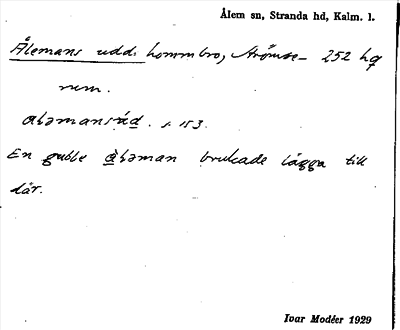 Ålem sn, Stranda hd, Kalm. l.
Ålemans udd. hommbro, Strömse- 252 hq
rum.
aləmansúd. s. 153.
En gubbe àləman brukade lägga till
där.
Ivar Modéer 1929